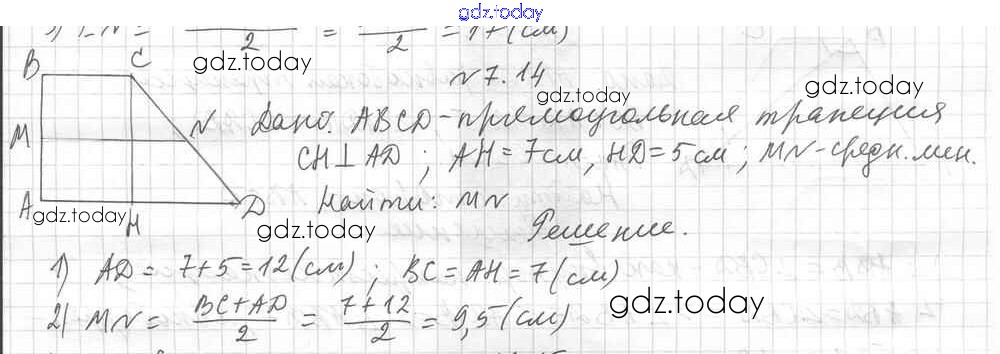 gdz.today
2 = 2 = 17 (см)
B C gdz.today
№ 7.14
gdz.today gdz.today
M N Дано: ABCD - прямоугольная трапеция
CH ⊥ AD ; AH = 7 см, HD = 5 см ; MN - средн. лин.
A H D Найти: MN
gdz.today gdz.today Решение.
1) AD = 7 + 5 = 12 (см) ; BC = AH = 7 (см)
2) MN = (BC + AD)/2 = (7 + 12)/2 = 9,5 (см)
gdz.today